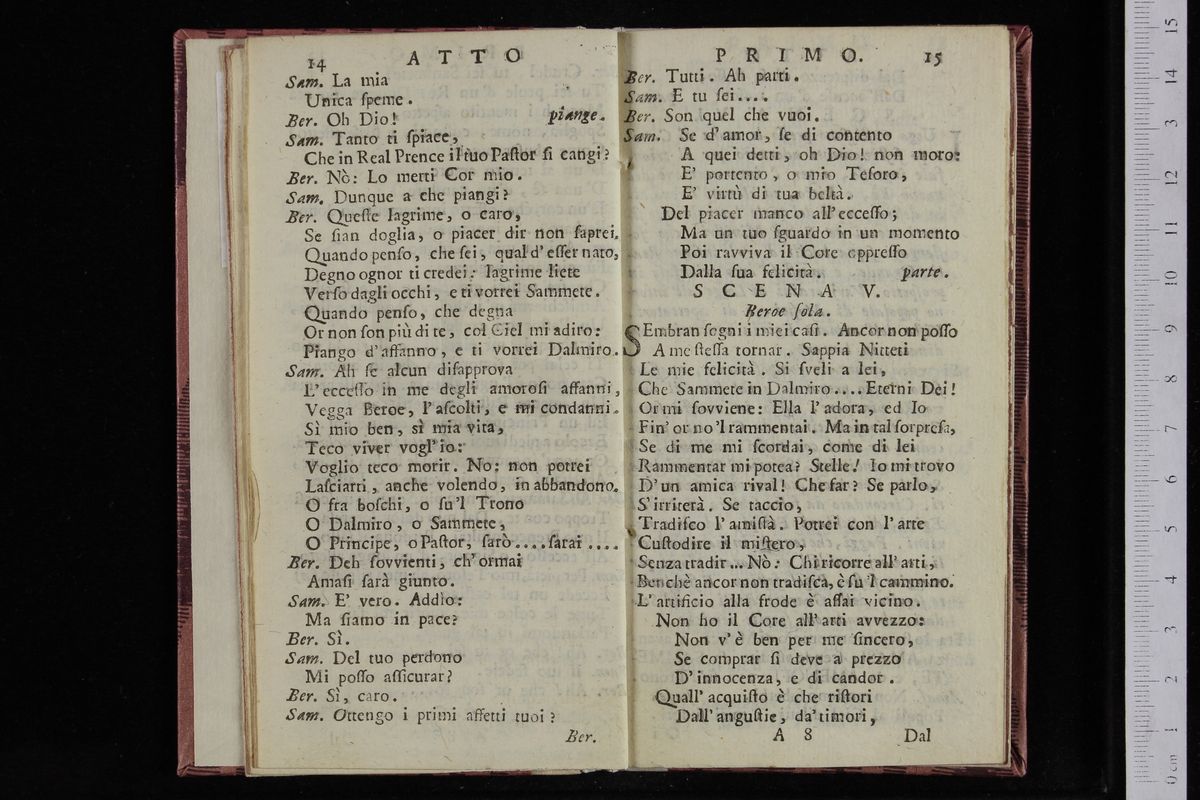 14 ATTO
Sam. La mia
Unica ſpeme.
Ber. Oh Dio! piange.
Sam. Tanto ti ſpiace,
Che in Real Prence il tuo Paſtor ſi cangi?
Ber. Nò: Lo merti Cor mio.
Sam. Dunque a che piangi?
Ber. Queſte lagrime, o caro,
Se ſian doglia, o piacer dir non ſaprei.
Quando penſo, che ſei, qual d'eſſer nato,
Degno ognor ti credei: lagrime liete
Verſo dagli occhi, e ti vorrei Sammete.
Quando penſo, che degna
Or non ſon più di te, col Ciel mi adiro:
Piango d'affanno, e ti vorrei Dalmiro.
Sam. Ah ſe alcun diſapprova
L'ecceſſo in me degli amoroſi affanni,
Vegga Beroe, l'aſcolti, e mi condanni.
Sì mio ben, sì mia vita,
Teco viver vogl'io:
Voglio teco morir. No: non potrei
Laſciarti, anche volendo, in abbandono.
O fra boſchi, o ſu'l Trono
O Dalmiro, o Sammete,
O Principe, o Paſtor, ſarò....ſarai ....
Ber. Deh ſovvienti, ch'ormai
Amaſi ſarà giunto.
Sam. E' vero. Addio:
Ma ſiamo in pace?
Ber. Sì.
Sam. Del tuo perdono
Mi poſſo aſſicurar?
Ber. Sì, caro.
Sam. Ottengo i primi affetti tuoi?
Ber.
PRIMO. 15
Ber. Tutti. Ah parti.
Sam. E tu ſei....
Ber. Son quel che vuoi.
Sam. Se d'amor, ſe di contento
A quei detti, oh Dio! non moro:
E' portento, o mio Teſoro,
E' virtù di tua beltà.
Del piacer manco all'ecceſſo;
Ma un tuo ſguardo in un momento
Poi ravviva il Core oppreſſo
Dalla ſua felicità. parte.
SCENA V.
Beroe ſola.
SEmbran ſogni i miei caſi. Ancor non poſſo
A me ſteſſa tornar. Sappia Nitteti
Le mie felicità. Si ſveli a lei,
Che Sammete in Dalmiro....Eterni Dei!
Or mi ſovviene: Ella l'adora, ed Io
Fin' or no'l rammentai. Ma in tal ſorpreſa,
Se di me mi ſcordai, come di lei
Rammentar mi potea? Stelle! Io mi trovo
D'un amica rival! Che far? Se parlo,
S'irriterà. Se taccio,
Tradiſco l'amiſtà. Potrei con l'arte
Cuſtodire il miſtero,
Senza tradir... Nò: Chi ricorre all'arti,
Benchè ancor non tradiſca, è ſu'l cammino.
L'artificio alla frode è aſſai vicino.
Non ho il Core all'arti avvezzo:
Non v'è ben per me ſincero,
Se comprar ſi deve a prezzo
D'innocenza, e di candor.
Quall'acquiſto è che riſtori
Dall'anguſtie, da'timori,
A 8 Dal
0 cm 1 2 3 4 5 6 7 8 9 10 11 12 13 14 15